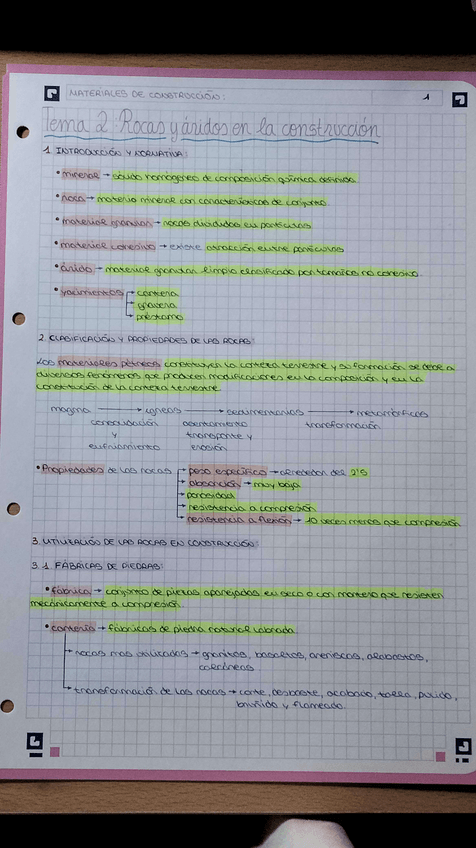 MATERIALES DE CONSTRUCCIÓN:
1
Tema 2: Rocas y áridos en la construcción
1. INTRODUCCIÓN Y NORMATIVA:
• mineral → sólido homogéneo de composición química definida
• roca → materia mineral con características de conjunto.
• material granular → rocas divididas en partículas
• material cohesivo → existe atracción entre partículas
• árido → material granular limpio clasificado por tamaños no cohesivo.
• yacimientos → cantera
→ gravera
→ préstamo
2. CLASIFICACIÓN Y PROPIEDADES DE LAS ROCAS:
Los materiales pétreos constituyen la corteza terrestre y su formación se debe a
diversos fenómenos que producen modificaciones en la composición y en la
constitución de la corteza terrestre.
magma → ígneas → sedimentarias → metamórficas
consolidación asentamiento transformación
y transporte y
enfriamiento erosión
• Propiedades de las rocas → peso específico → alrededor del 2'5
→ absorción → muy baja
→ porosidad
→ resistencia a compresión
→ resistencia a flexión → 10 veces menos que compresión
3. UTILIZACIÓN DE LAS ROCAS EN CONSTRUCCIÓN:
3.1. FÁBRICAS DE PIEDRAS:
• fábrica → conjunto de piezas aparejadas en seco o con mortero que resisten
mecánicamente a compresión.
• cantería → fábricas de piedra natural labrada
→ rocas más utilizadas → granitos, basaltos, areniscas, alabastros,
calcáreas
→ transformación de las rocas → corte, desbaste, acabado, talla, pulido,
bruñido y flameado.